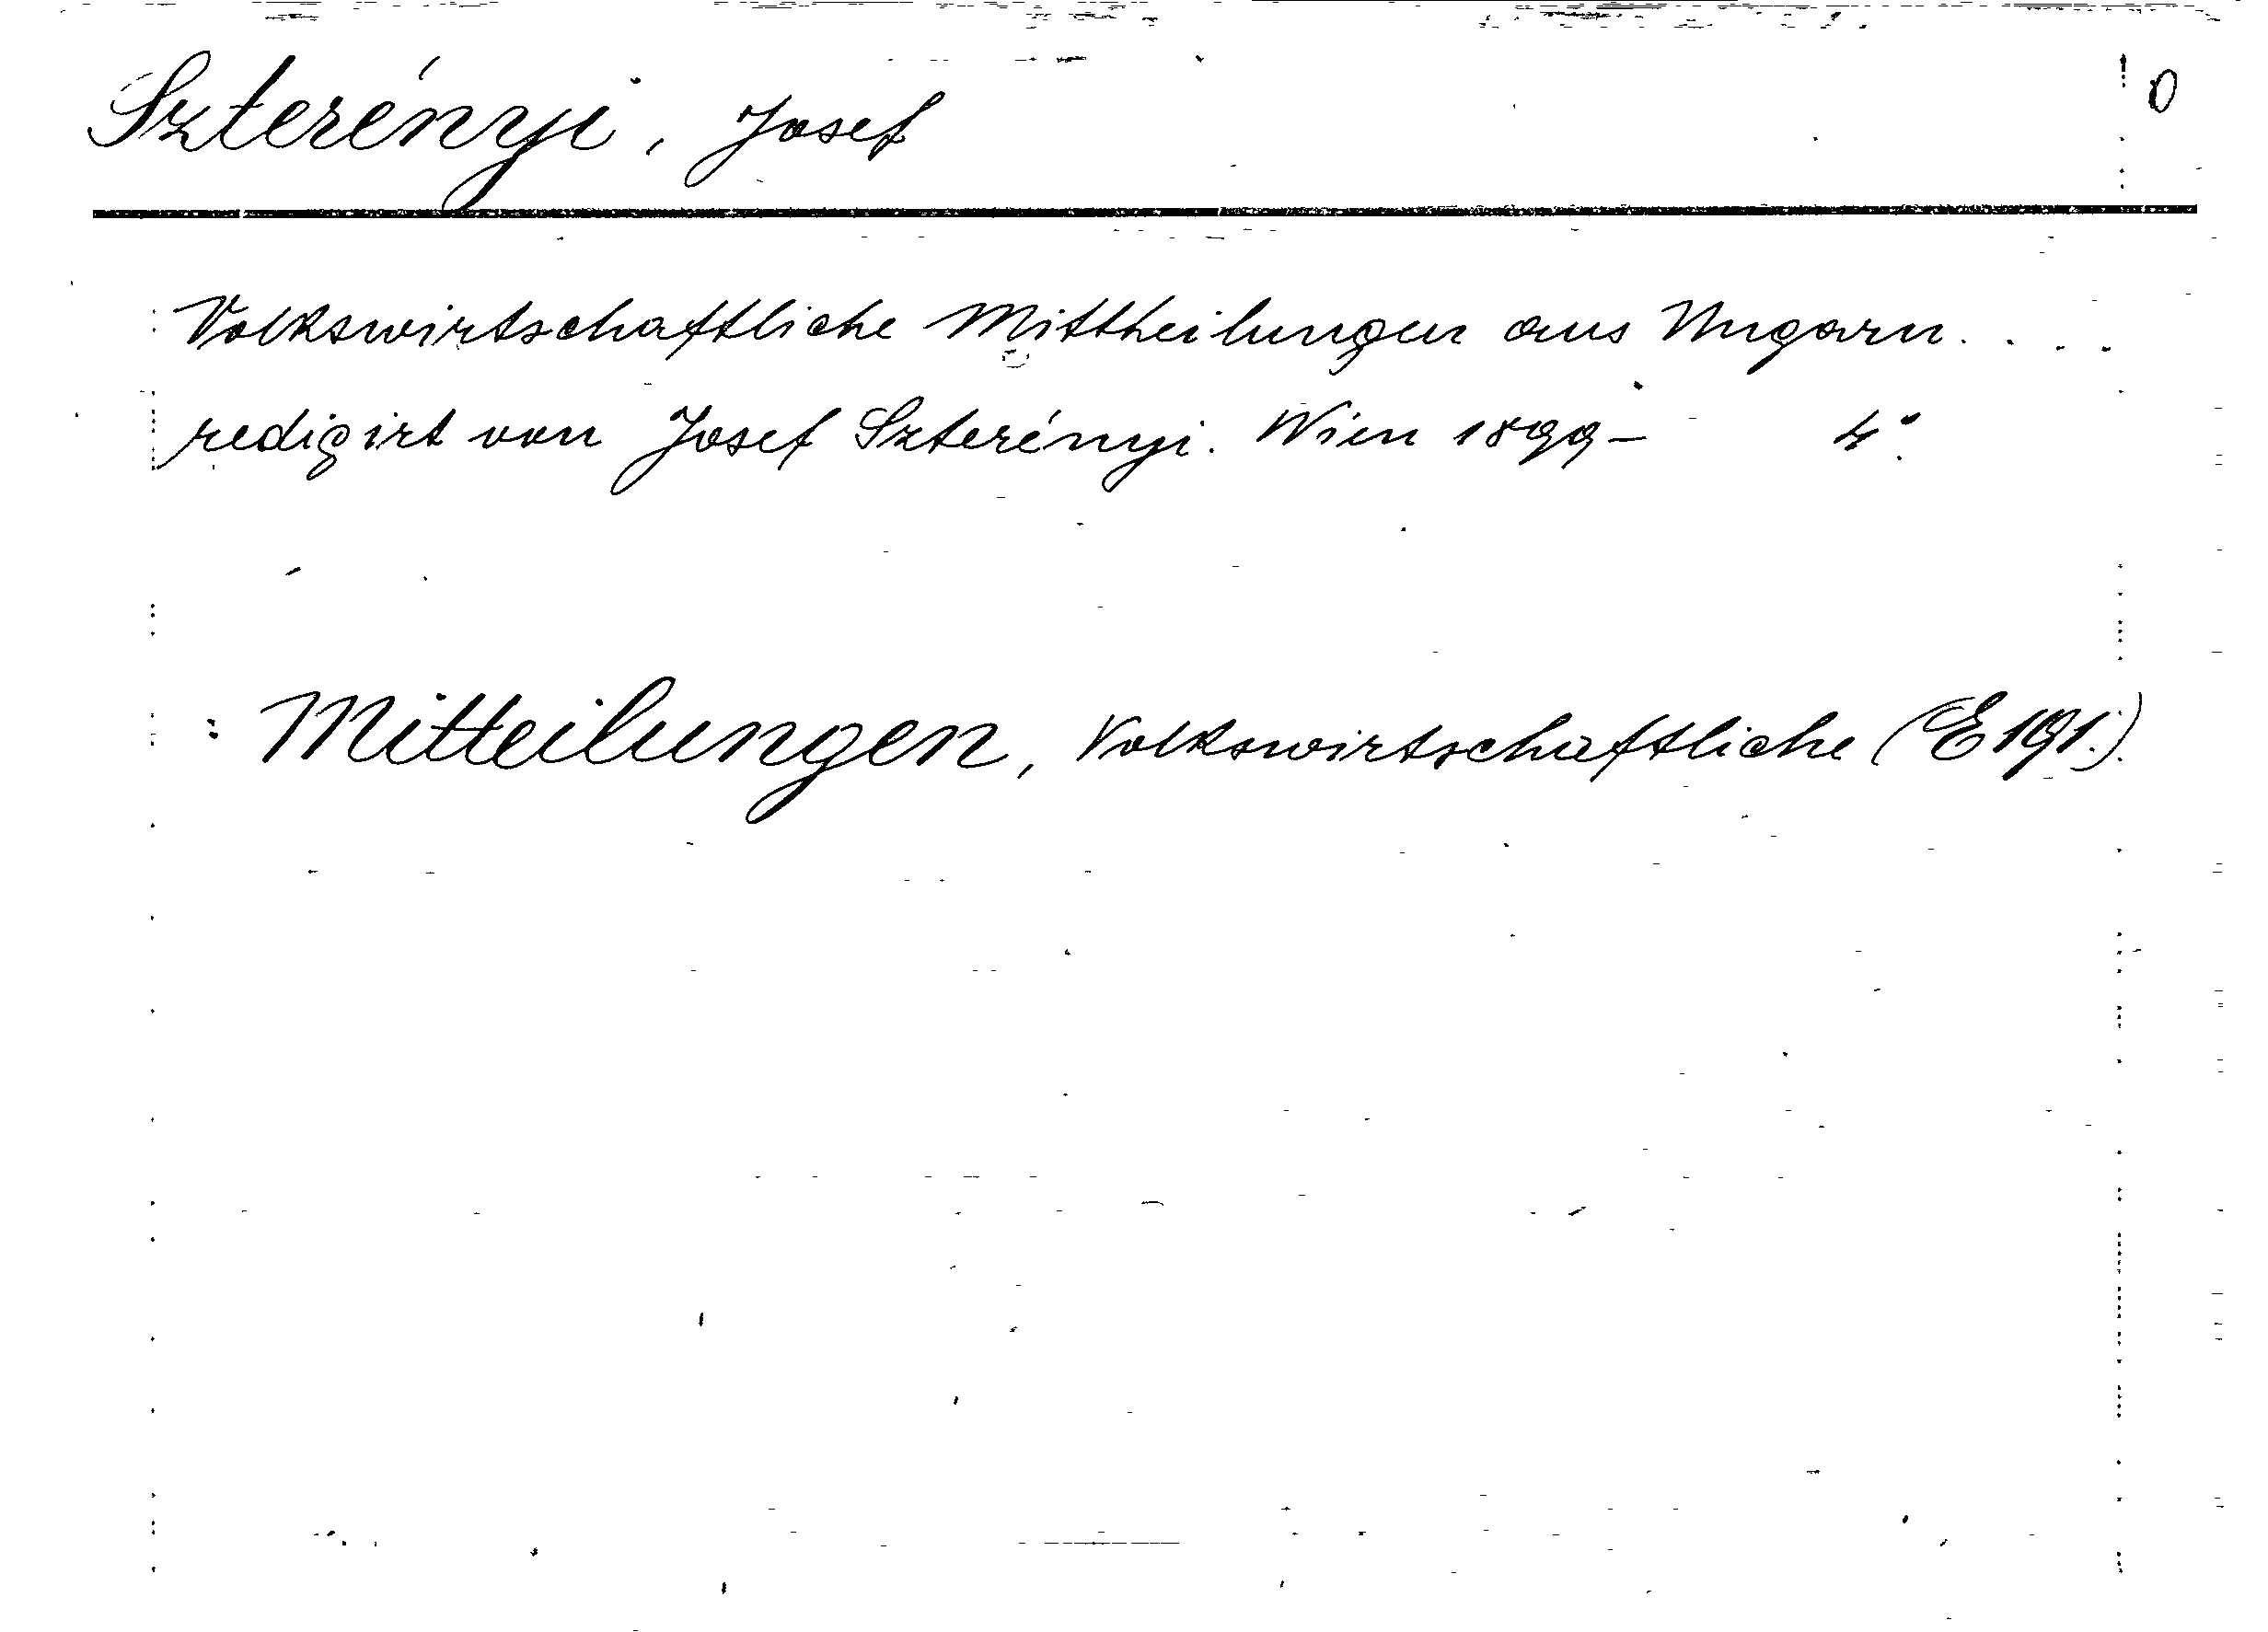 Szterényi, Josef 0
Volkswirtschaftliche Mittheilungen aus Ungarn....
redigirt von Josef Szterényi. Wien 1899– 4°.
: Mitteilungen, Volkswirtschaftliche (E 191.)